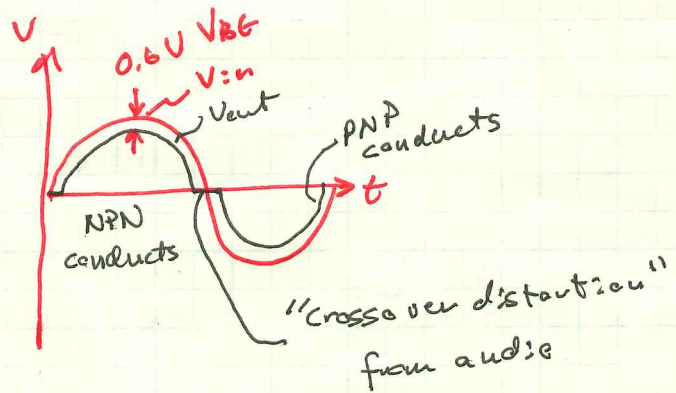 V
0.6V VBE
Vin
Vout
PNP
conducts
t
NPN
conducts
"Crossover distortion"
from audio